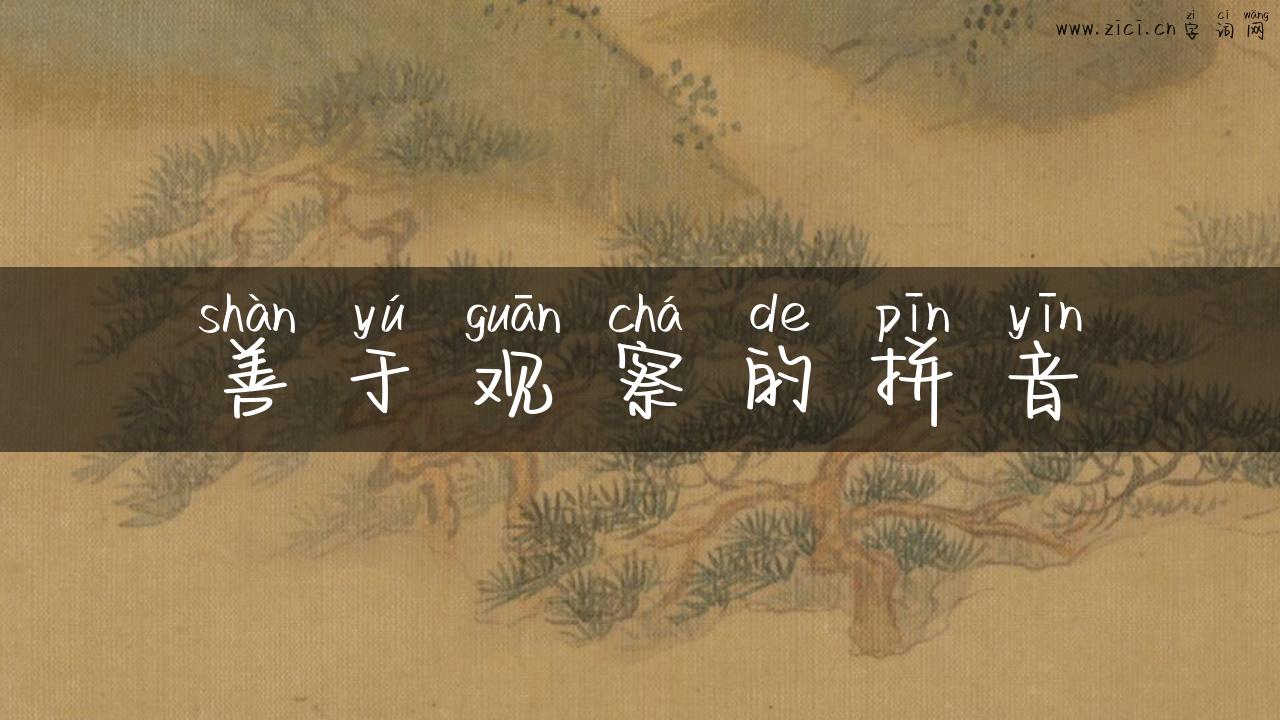 zì cí wǎng
www.zici.cn 字词网
shàn yú guān chá de pīn yīn
善于观察的拼音